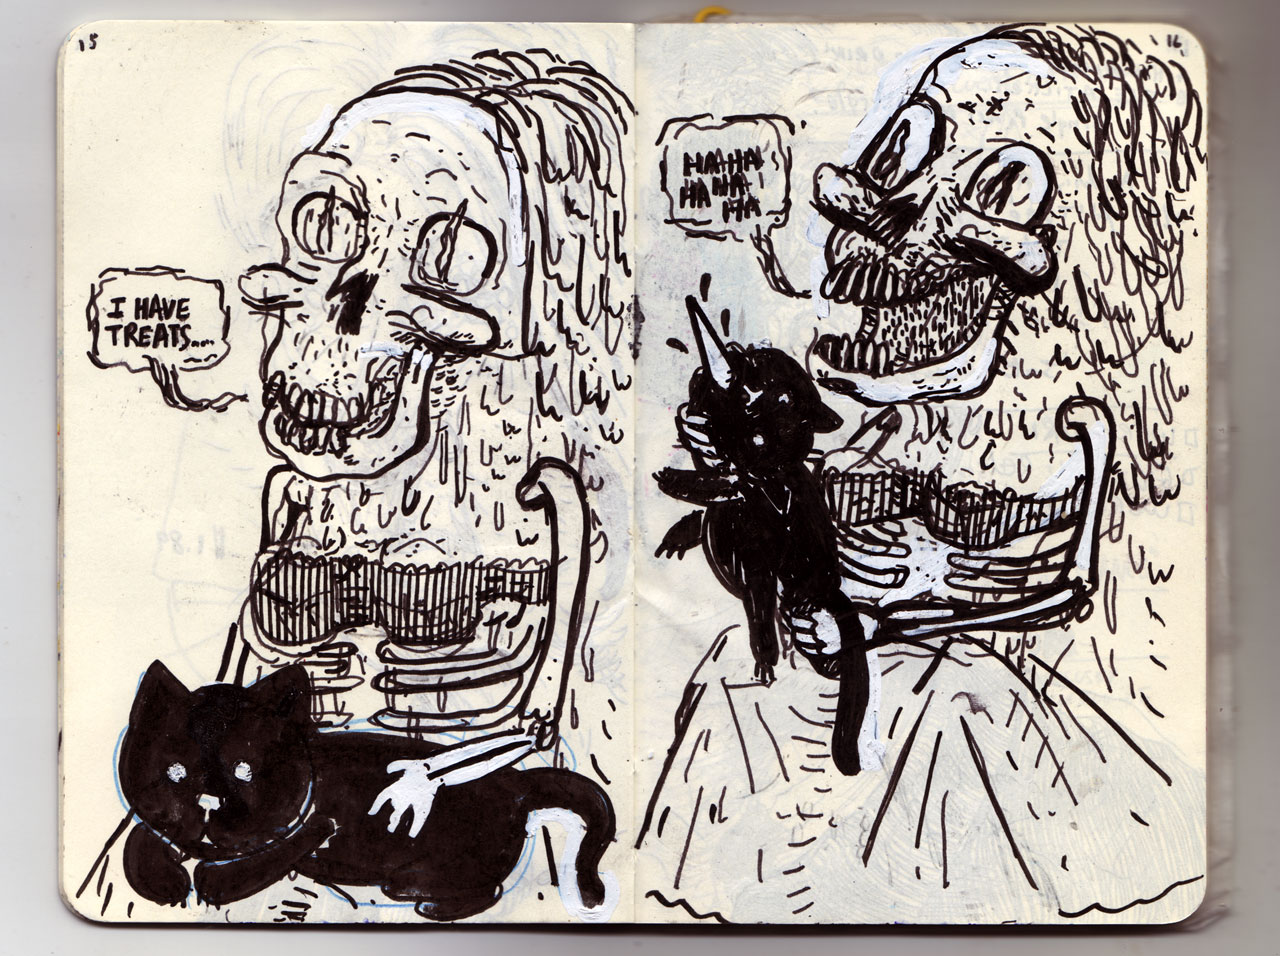 15
I HAVE
TREATS....
16
HA HA
HA HA
HA